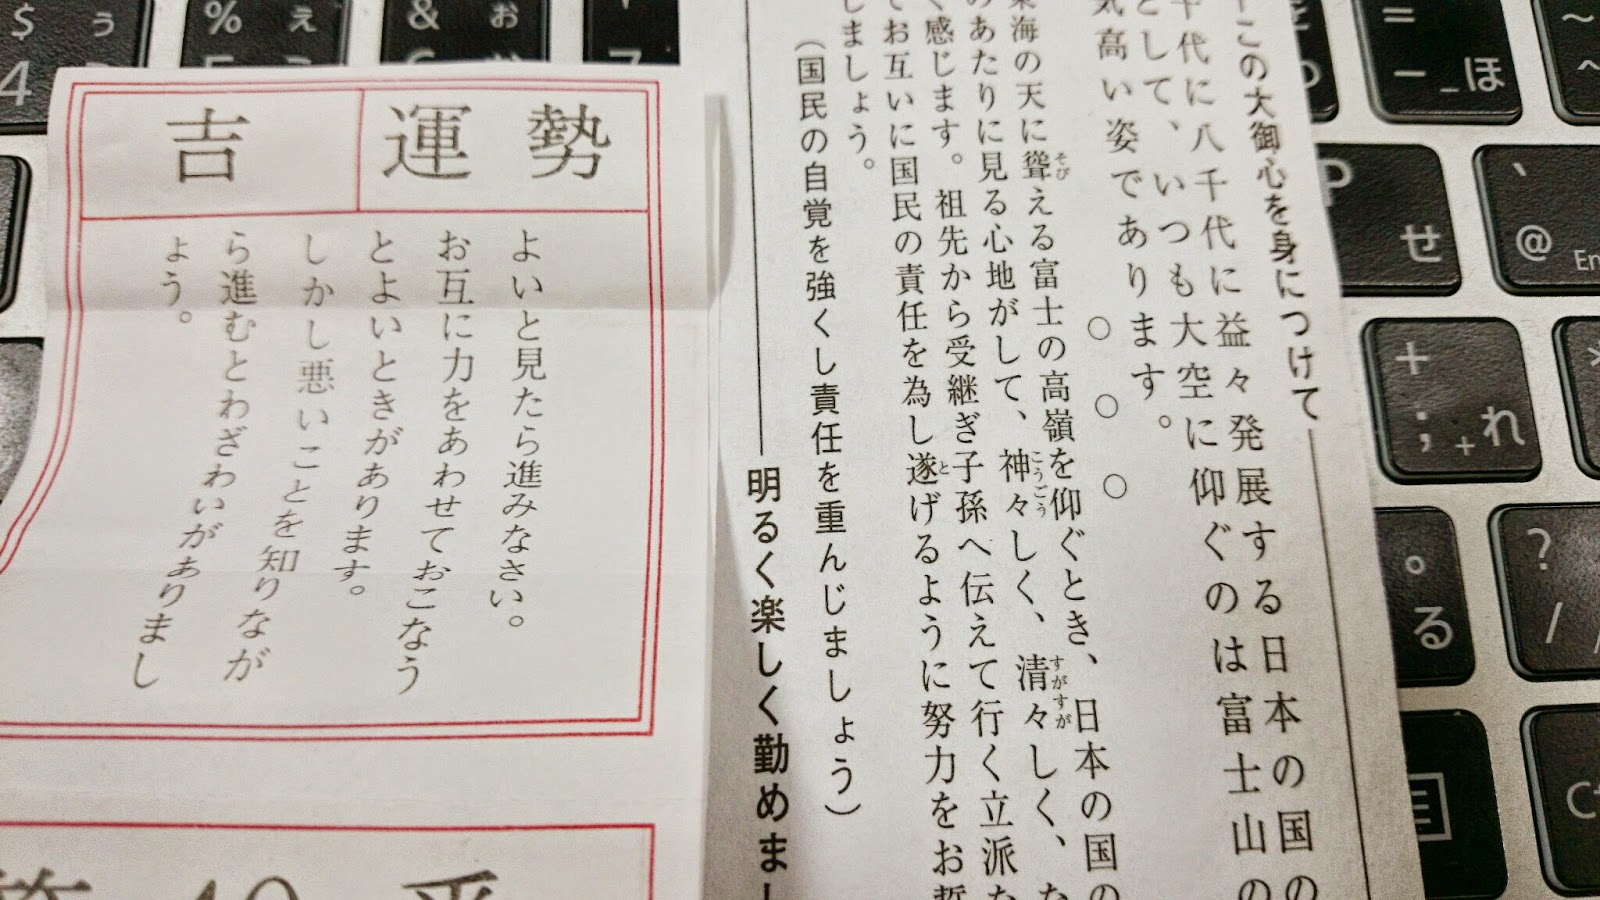 勢運
吉
よいと見たら進みなさい。
お互に力をあわせておこなう
とよいときがあります。
しかし悪いことを知りなが
ら進むとわざわいがありまし
ょう。
この大御心を身につけて
千代に八千代に益々発展する日本の国の
として、いつも大空に仰ぐのは富士山の
気高い姿であります。
○ ○ ○
東海の天に聳える富士の高嶺を仰ぐとき、日本の国の
そび
のあたりに見る心地がして、神々しく、清々しく、た
こうごう すがすが
く感じます。祖先から受継ぎ子孫へ伝えて行く立派な
でお互いに国民の責任を為し遂げるように努力をお
と
しましょう。
(国民の自覚を強くし責任を重んじましょう)
明るく楽しく勤めまし
$ ぅ
4
% ぇ
& ぉ
=
- ほ
~
^
P せ
@
En
+
; れ
*
。
る
?
/